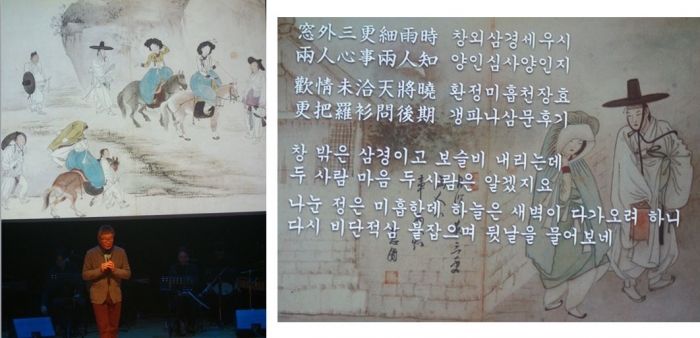 窓外三更細雨時 창외삼경세우시
兩人心事兩人知 양인심사양인지
歡情未洽天將曉 환정미흡천장효
更把羅衫問後期 갱파나삼문후기
창 밖은 삼경이고 보슬비 내리는데
두 사람 마음 두 사람은 알겠지요
나눈 정은 미흡한데 하늘은 새벽이 다가오려 하니
다시 비단적삼 붙잡으며 뒷날을 물어보네